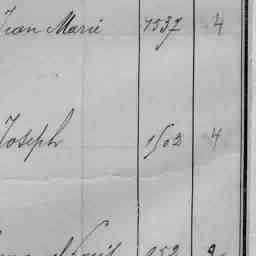 Jean Marie 1537 4
Joseph 1502 4
952